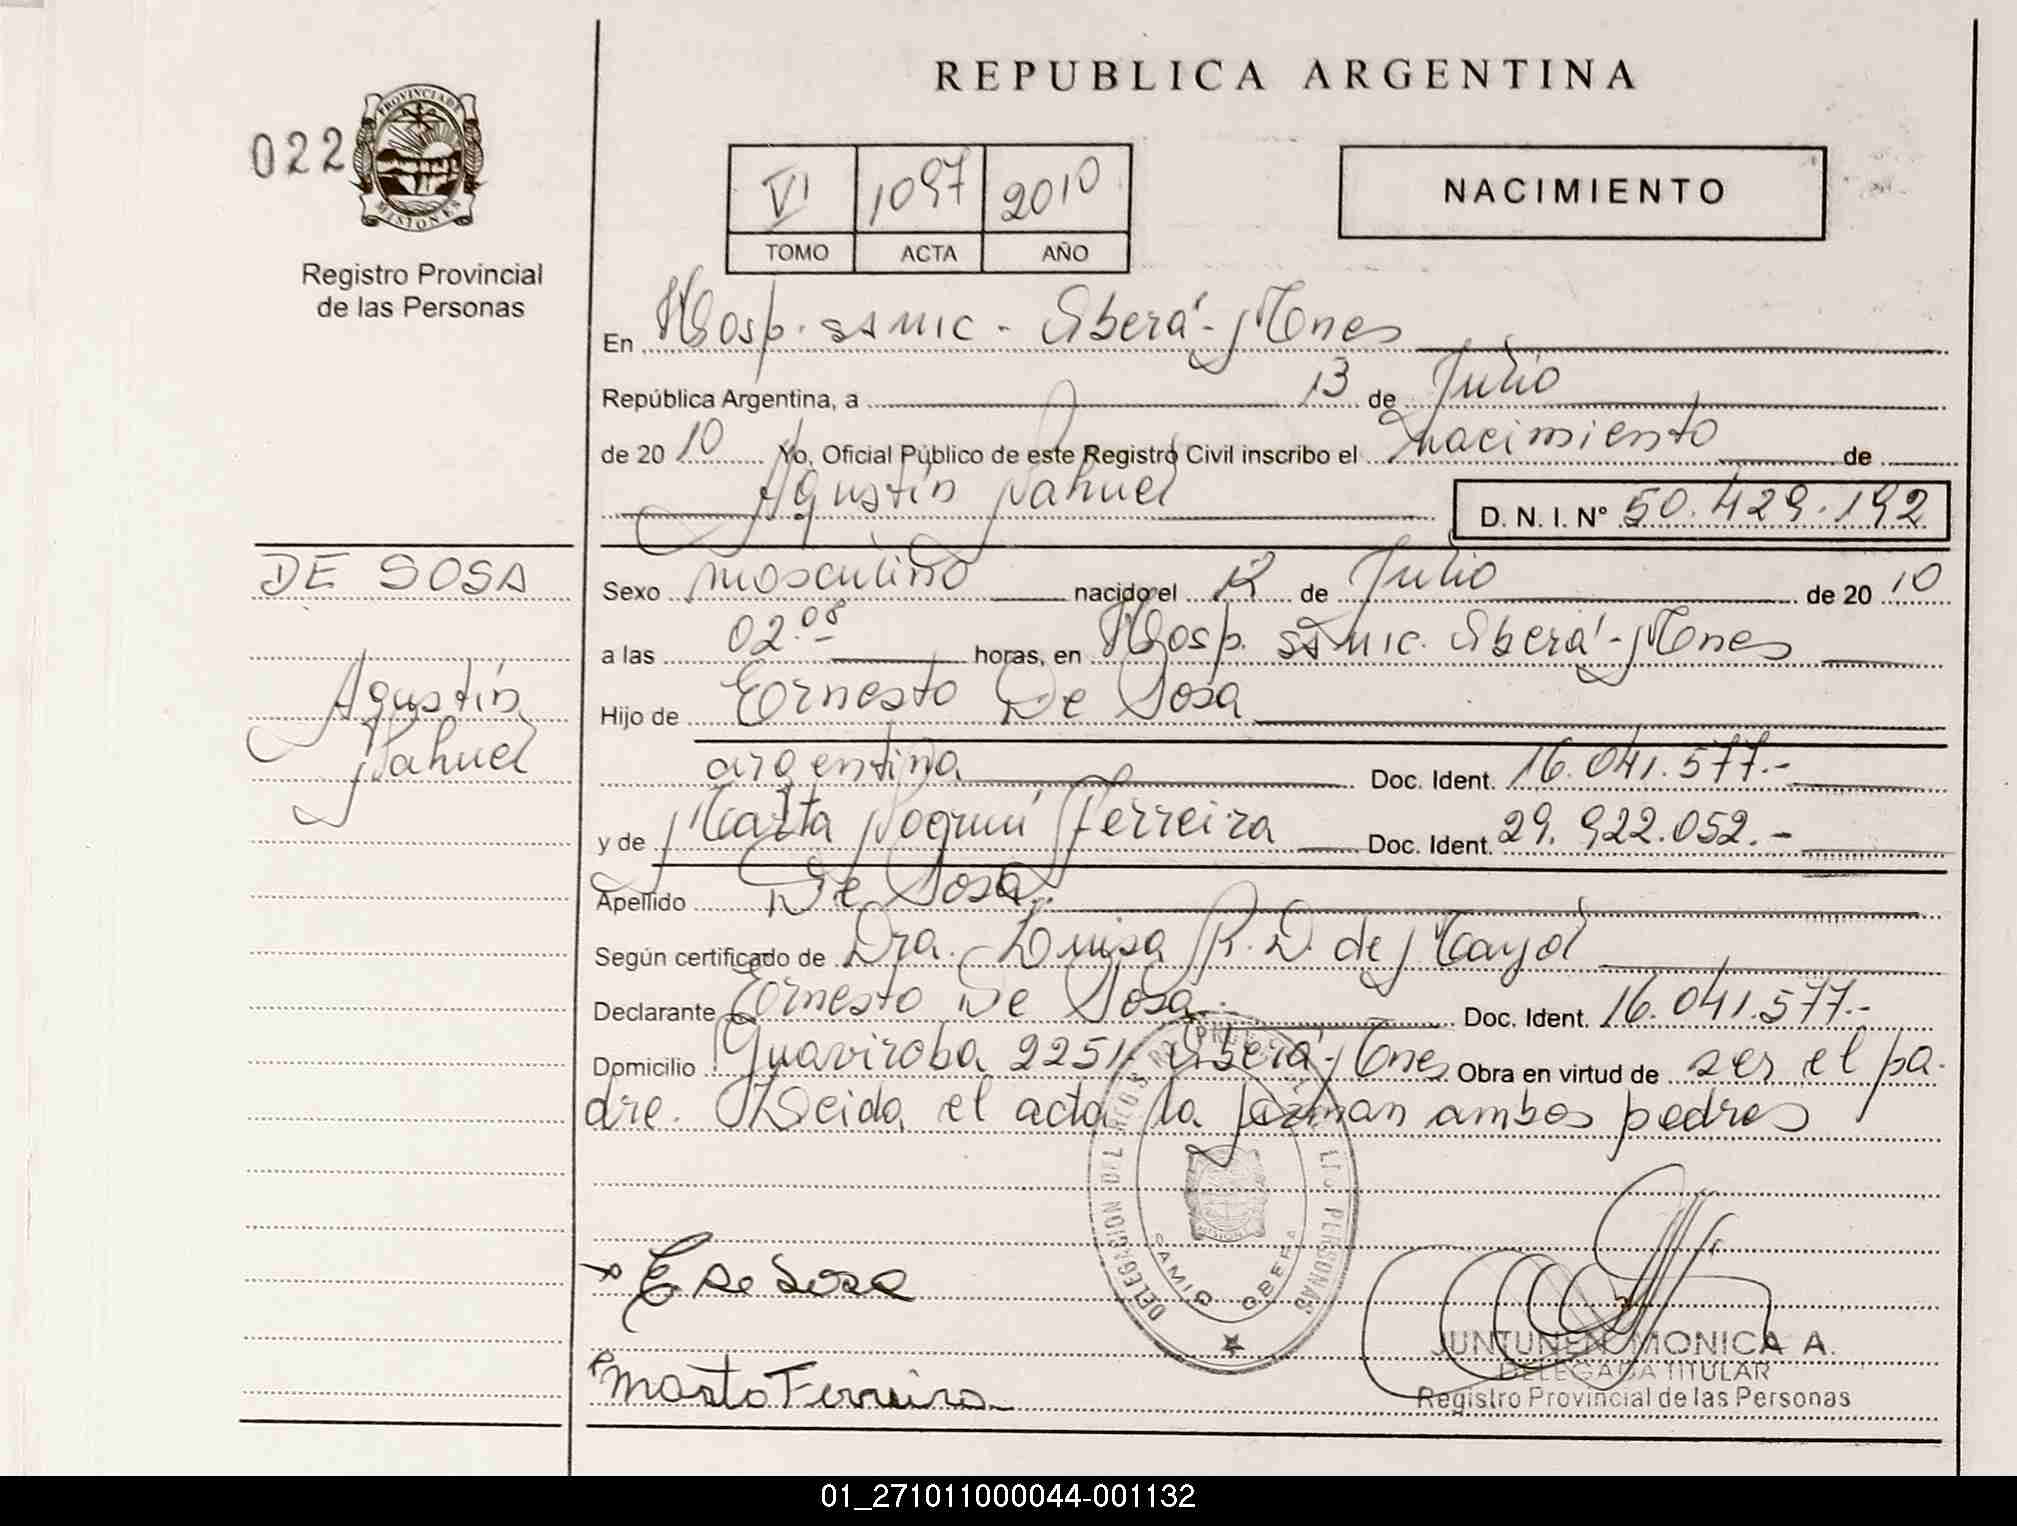 REPUBLICA ARGENTINA
022
PROVINCIA DE
MISIONES
Registro Provincial
de las Personas
VI 1097 2010
TOMO ACTA AÑO
NACIMIENTO
En Hosp. SAMIC - Oberá - Mnes
República Argentina, a 13 de Julio
de 2010 Yo, Oficial Público de este Registro Civil inscribo el nacimiento de
Agustín Nahuel D. N. I. N° 50.429.192
DE SOSA
Agustín
Nahuel
Sexo masculino nacido el 12 de Julio de 2010
a las 02.08 horas, en Hosp. SAMIC. Oberá - Mnes
Hijo de Ernesto De Sosa
argentina Doc. Ident. 16.041.577.-
y de Marta Noemí Ferreira Doc. Ident. 29.922.052.-
Apellido De Sosa.
Según certificado de Dra. Luisa R. D. de Mayol
Declarante Ernesto De Sosa. Doc. Ident. 16.041.577.-
Domicilio Guaviroba 2251 - Oberá - Mnes Obra en virtud de ser el pa-
dre. Leida el acta la firman ambos padres
DELEGACION DEL PERSONAS
SAMIC OBERA
E De Sosa
Marta Ferreira
JUNTUNEN MONICA A.
DELEGADA TITULAR
Registro Provincial de las Personas
01_271011000044-001132